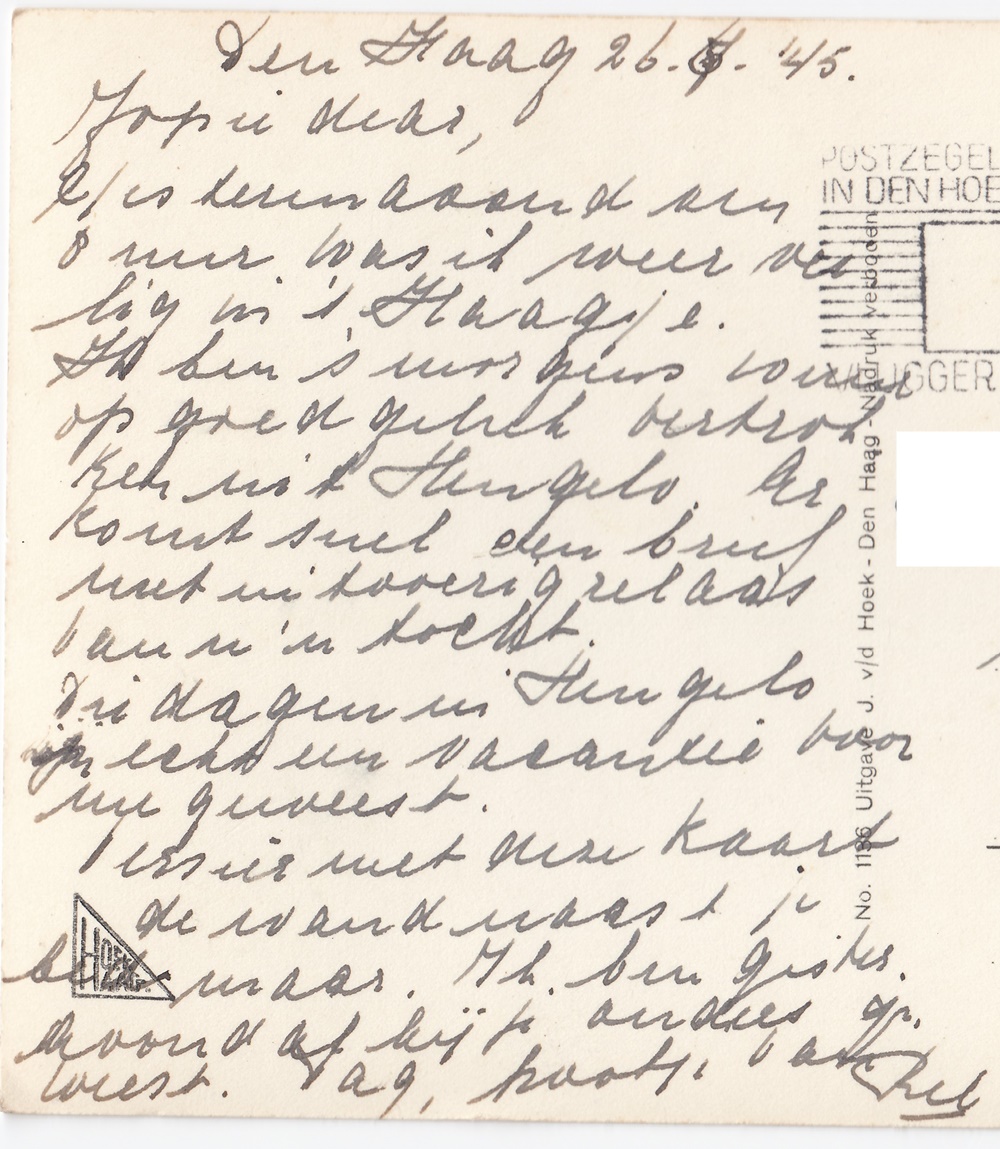 Den Haag 26. 7. '45.
Jopie dear,
Gisterenavond om
8 uur was ik weer vei
lig in 't Haagje.
Ik ben 's morgens
op goed geluk vertrok
ken uit Hengelo. Er
komt snel een brief
met uitvoerig relaas
van m'n tocht.
Drie dagen in Hengelo
zijn echt een vacantie voor
me geweest.
Versier met deze kaart
de wand naast je
bed maar. Ik ben gister.
avond af bij je ouders ge.
weest. Dag, pootje van
POSTZEGEL
IN DEN HOE
VLUGGER
No. 1186 Uitgave J. v/d Hoek - Den Haag - Nadruk verboden
HOEK
HAAG